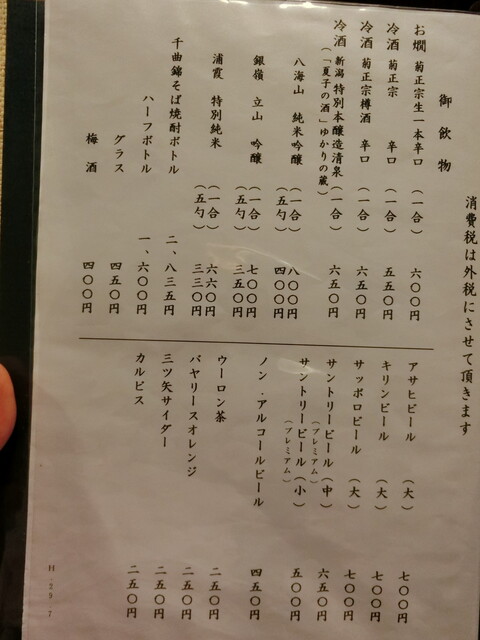 消費税は外税にさせて頂きます
御飲物
お燗 菊正宗生一本辛口 (一合) 六〇〇円
冷酒 菊正宗 辛口 (一合) 五五〇円
冷酒 菊正宗樽酒 辛口 (一合) 六五〇円
冷酒 新潟 特別本醸造清泉 (一合) 六五〇円
(「夏子の酒」ゆかりの蔵)
八海山 純米吟醸 (一合) 八〇〇円
(五勺) 四〇〇円
銀嶺 立山 吟醸 (一合) 七〇〇円
(五勺) 三五〇円
浦霞 特別純米 (一合) 六六〇円
(五勺) 三三〇円
千曲錦そば焼酎ボトル 二、八三五円
ハーフボトル 一、六〇〇円
グラス 四五〇円
梅酒 四〇〇円
アサヒビール (大) 七〇〇円
キリンビール (大) 七〇〇円
サッポロビール (大) 七〇〇円
サントリービール (中) 六五〇円
(プレミアム)
サントリービール (小) 五〇〇円
(プレミアム)
ノン.アルコールビール 四五〇円
ウーロン茶 二五〇円
バヤリースオレンジ 二五〇円
三ツ矢サイダー 二五〇円
カルピス 二五〇円
H.29.7